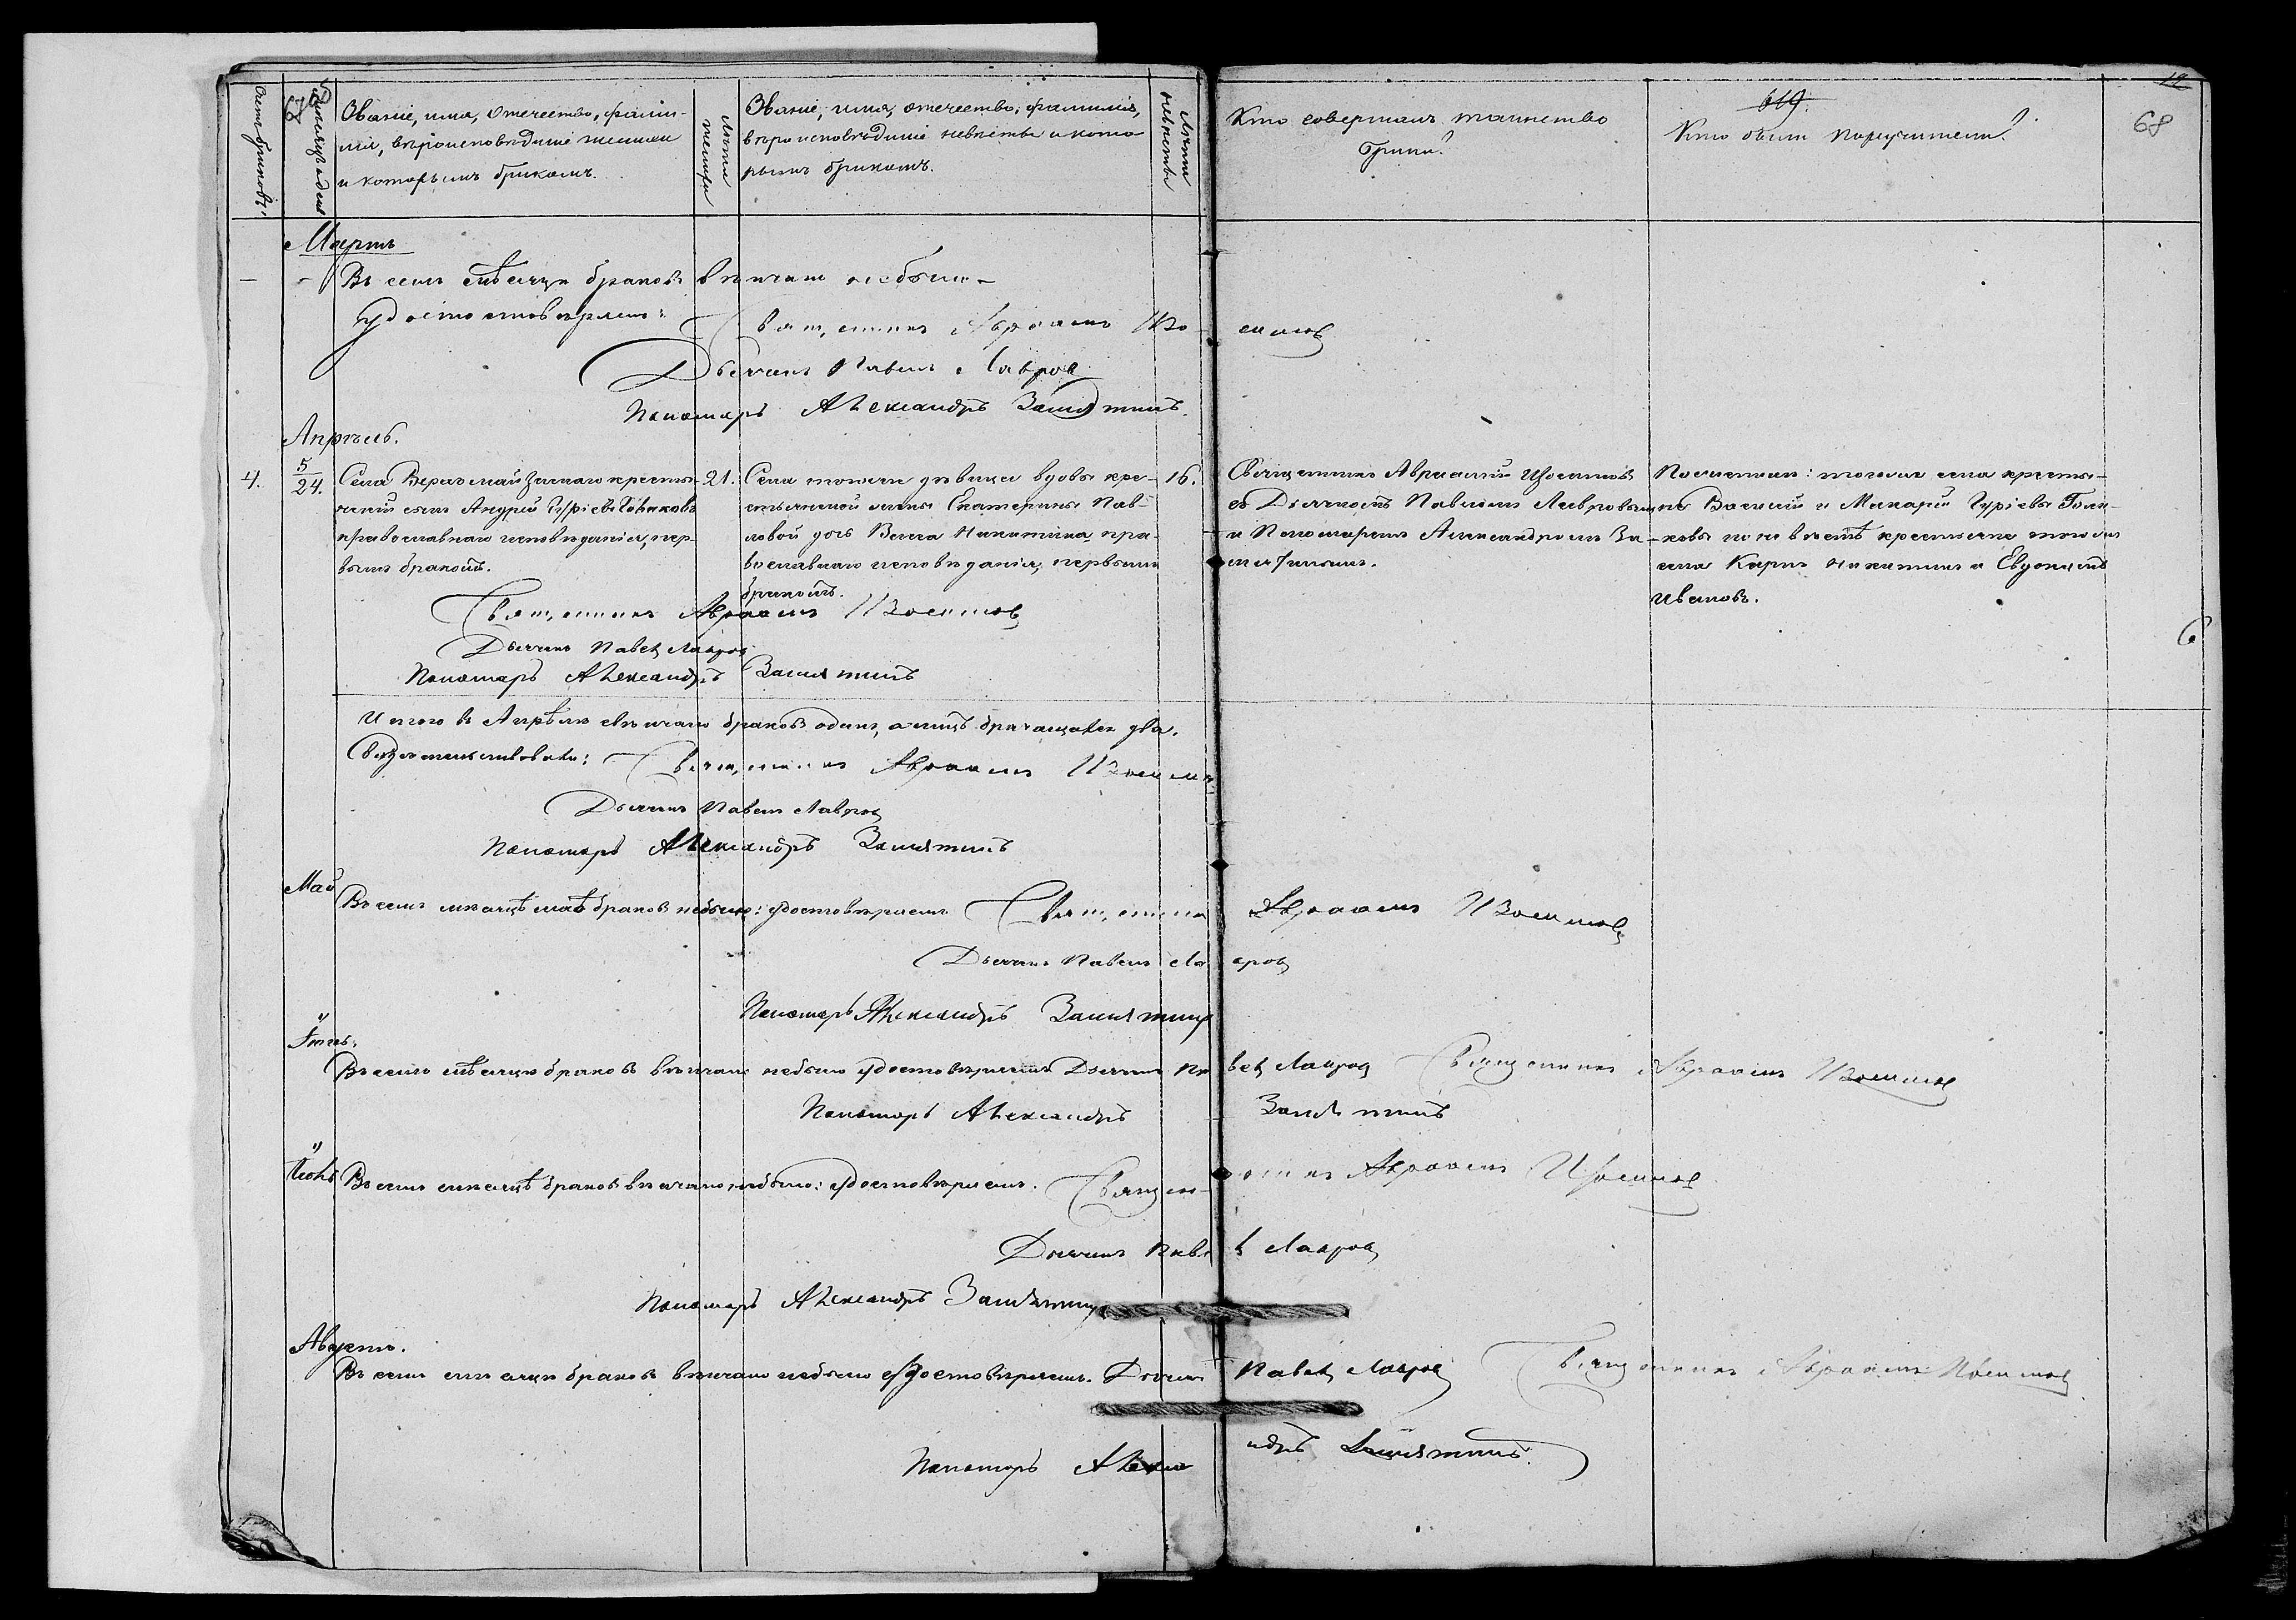 Счетъ браковъ.
Мѣсяцъ и день
Званіе, имя, отечество, фами-
лія, вѣроисповѣданіе женихи
и которымъ бракомъ.
Лѣта жениха
Званіе, имя, отечество, фамилія,
вѣроисповѣданіе невѣсты и кото-
рымъ бракомъ.
Лѣта невѣсты
Кто совершалъ таинство
брака?
619.
Кто были поручители?
12
68
Мартъ
Въ семъ мѣсяцѣ браковъ вѣнчано небыло
Удостовѣряемъ:
Священникъ Авраамъ Изосимовъ
Дьячекъ Павелъ Лавровъ
Пономарь Александръ Замятинъ.
Апрѣль.
4.
5
24.
Села крестья-
нскій сынъ Андрей Гурьевъ
православнаго исповѣданія, пер-
вымъ бракомъ.
21.
Села тогоже дѣвица вдовы кре-
стьянской жены Екатерины Пав-
ловой дочь Никитина, пра-
вославнаго исповѣданія, первымъ
бракомъ.
16.
Священникъ Авраамій Изосимовъ
съ Дьячкомъ Павломъ Лавровымъ
и Пономаремъ Александромъ За-
мятинымъ.
тогоже села крестья-
не Василій и Макарій Гурьевы
по невѣстѣ крестьяне тогоже
села Карпъ Никитинъ и Евдокимъ
Ивановъ.
Священникъ Авраамъ Изосимовъ
Дьячекъ Павелъ Лавровъ
Пономарь Александръ Замятинъ
6
Итого въ Апрѣлѣ вѣнчано браковъ одинъ, а лицъ два.
Священникъ Авраамъ Изосимовъ
Дьячекъ Павелъ Лавровъ
Пономарь Александръ Замятинъ
Май
Въ семъ мѣсяцѣ маѣ браковъ небыло: удостовѣряемъ Священникъ Авраамъ Изосимовъ
Дьячекъ Павелъ Лавровъ
Пономарь Александръ Замятинъ
Въ семъ мѣсяцѣ браковъ вѣнчано небыло удостовѣряемъ Дьячекъ Павелъ Лавровъ Священникъ Авраамъ Изосимовъ
Пономарь Александръ Замятинъ
Въ семъ мѣсяцѣ браковъ вѣнчано небыло: удостовѣряемъ. Священникъ Авраамъ Изосимовъ
Дьячекъ Павелъ Лавровъ
Пономарь Александръ Замятинъ
Августъ.
Въ семъ мѣсяцѣ браковъ вѣнчано небыло удостовѣряемъ. Дьячекъ Павелъ Лавровъ Священникъ Авраамъ Изосимовъ
Пономарь Александръ Замятинъ.